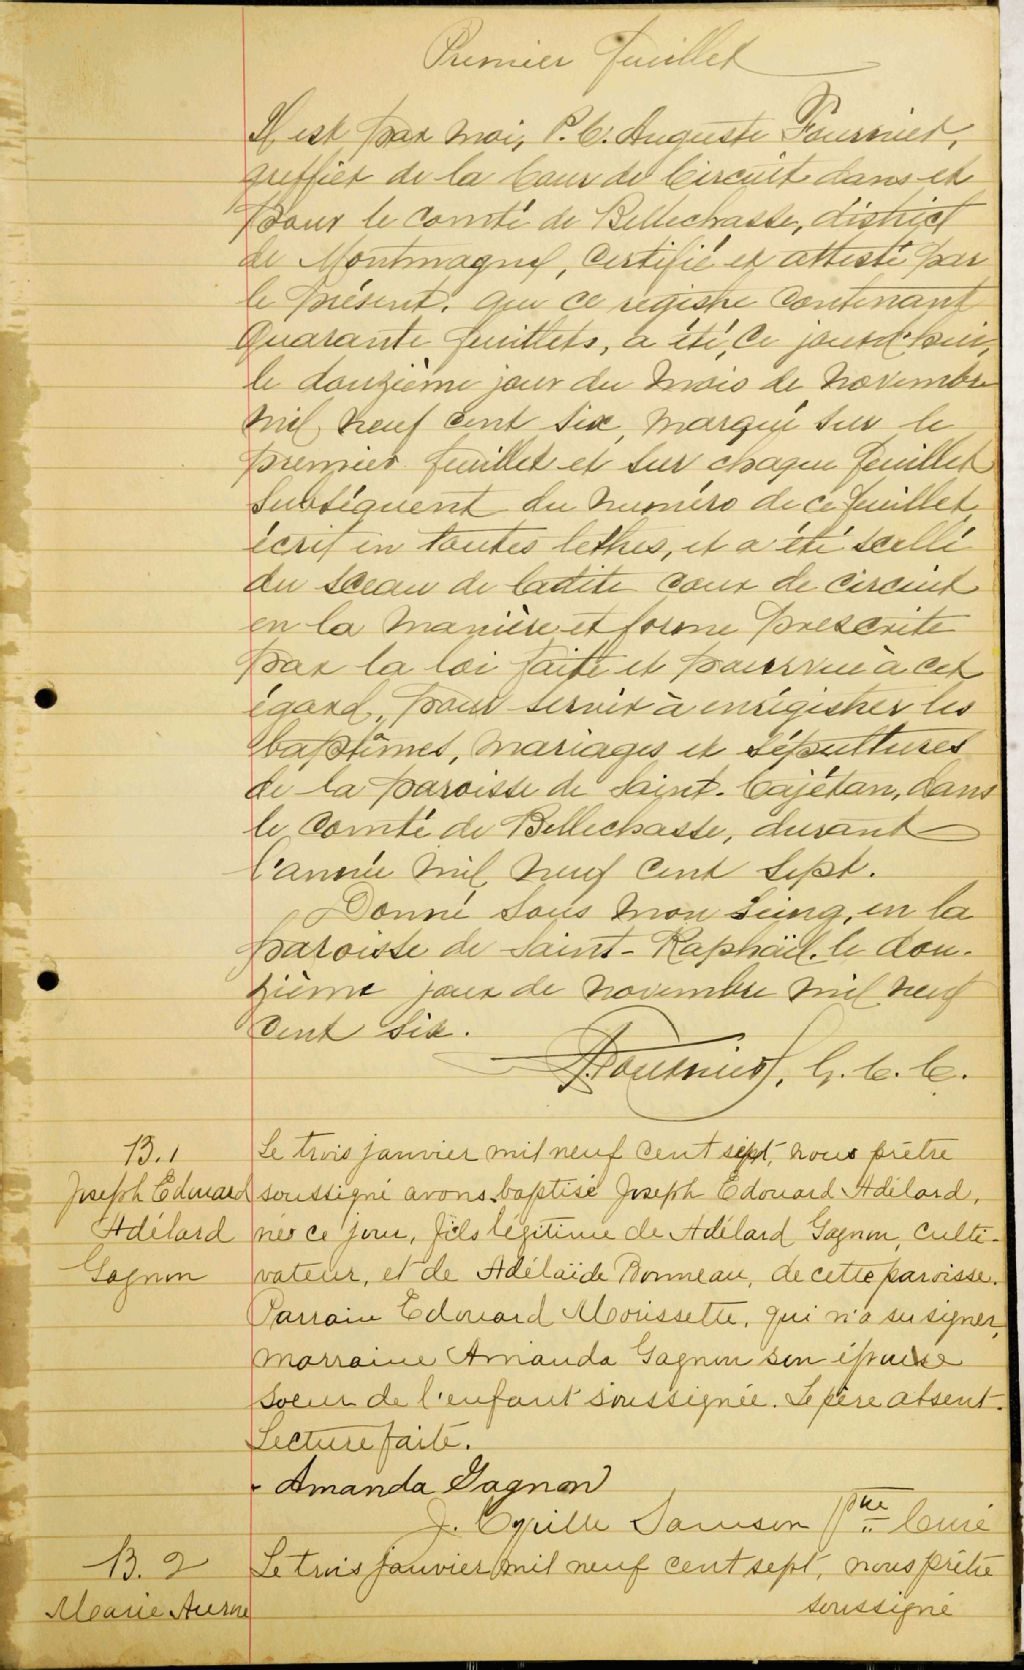 Premier feuillet
Il est par moi, P. C. Auguste Fournier,
greffier de la Cour de Circuit dans et
pour le comté de Bellechasse, district
de Montmagny, certifié et attesté par
le présent, que ce registre contenant
quarante feuillets, a été, ce jourd'hui,
le douzième jour du mois de novembre
mil neuf cent six, marqué sur le
premier feuillet et sur chaque feuillet
subséquent du numéro de ce feuillet,
écrit en toutes lettres, et a été scellé
du sceau de ladite cour de circuit
en la manière et forme prescrite
par la loi faite et pourvue à cet
égard, pour servir à enrégistrer les
baptêmes, mariages et sépultures
de la paroisse de Saint-Cajétan, dans
le comté de Bellechasse, durant
l'année mil neuf cent sept.
Donné sous mon seing, en la
paroisse de Saint-Raphaël, le dou-
zième jour de novembre mil neuf
cent six.
Fournier, G. C. C.
B. 1
Joseph Edouard
Adélard
Gagnon
Le trois janvier mil neuf cent sept, nous prêtre
soussigné avons baptisé Joseph Edouard Adélard,
né ce jour, fils légitime de Adélard Gagnon, culti-
vateur, et de Adélaïde Bonneau, de cette paroisse.
Parrain Edouard Morissette, qui n'a su signer,
marraine Amanda Gagnon son épouse
soeur de l'enfant soussignée. Le père absent.
Lecture faite.
Amanda Gagnon
J. Cyrille Samson Ptre Curé
B. 2
Marie Aurore
Le trois janvier mil neuf cent sept, nous prêtre
soussigné